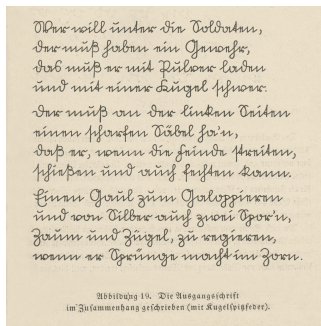 Wer will unter die Soldaten,
der muß haben ein Gewehr,
das muß er mit Pulver laden
und mit einer Kugel schwer.
Der muß an der linken Seiten
einen scharfen Säbel ha'n,
daß er, wenn die Feinde streiten,
schießen und auch fechten kann.
Einen Gaul zum Galoppieren
und von Silber auch zwei Spor'n,
Zaum und Zügel, zu regieren,
wenn er Sprünge macht im Zorn.
Abbildung 19. Die Ausgangsschrift
im Zusammenhang geschrieben (mit Kugelspitzfeder).